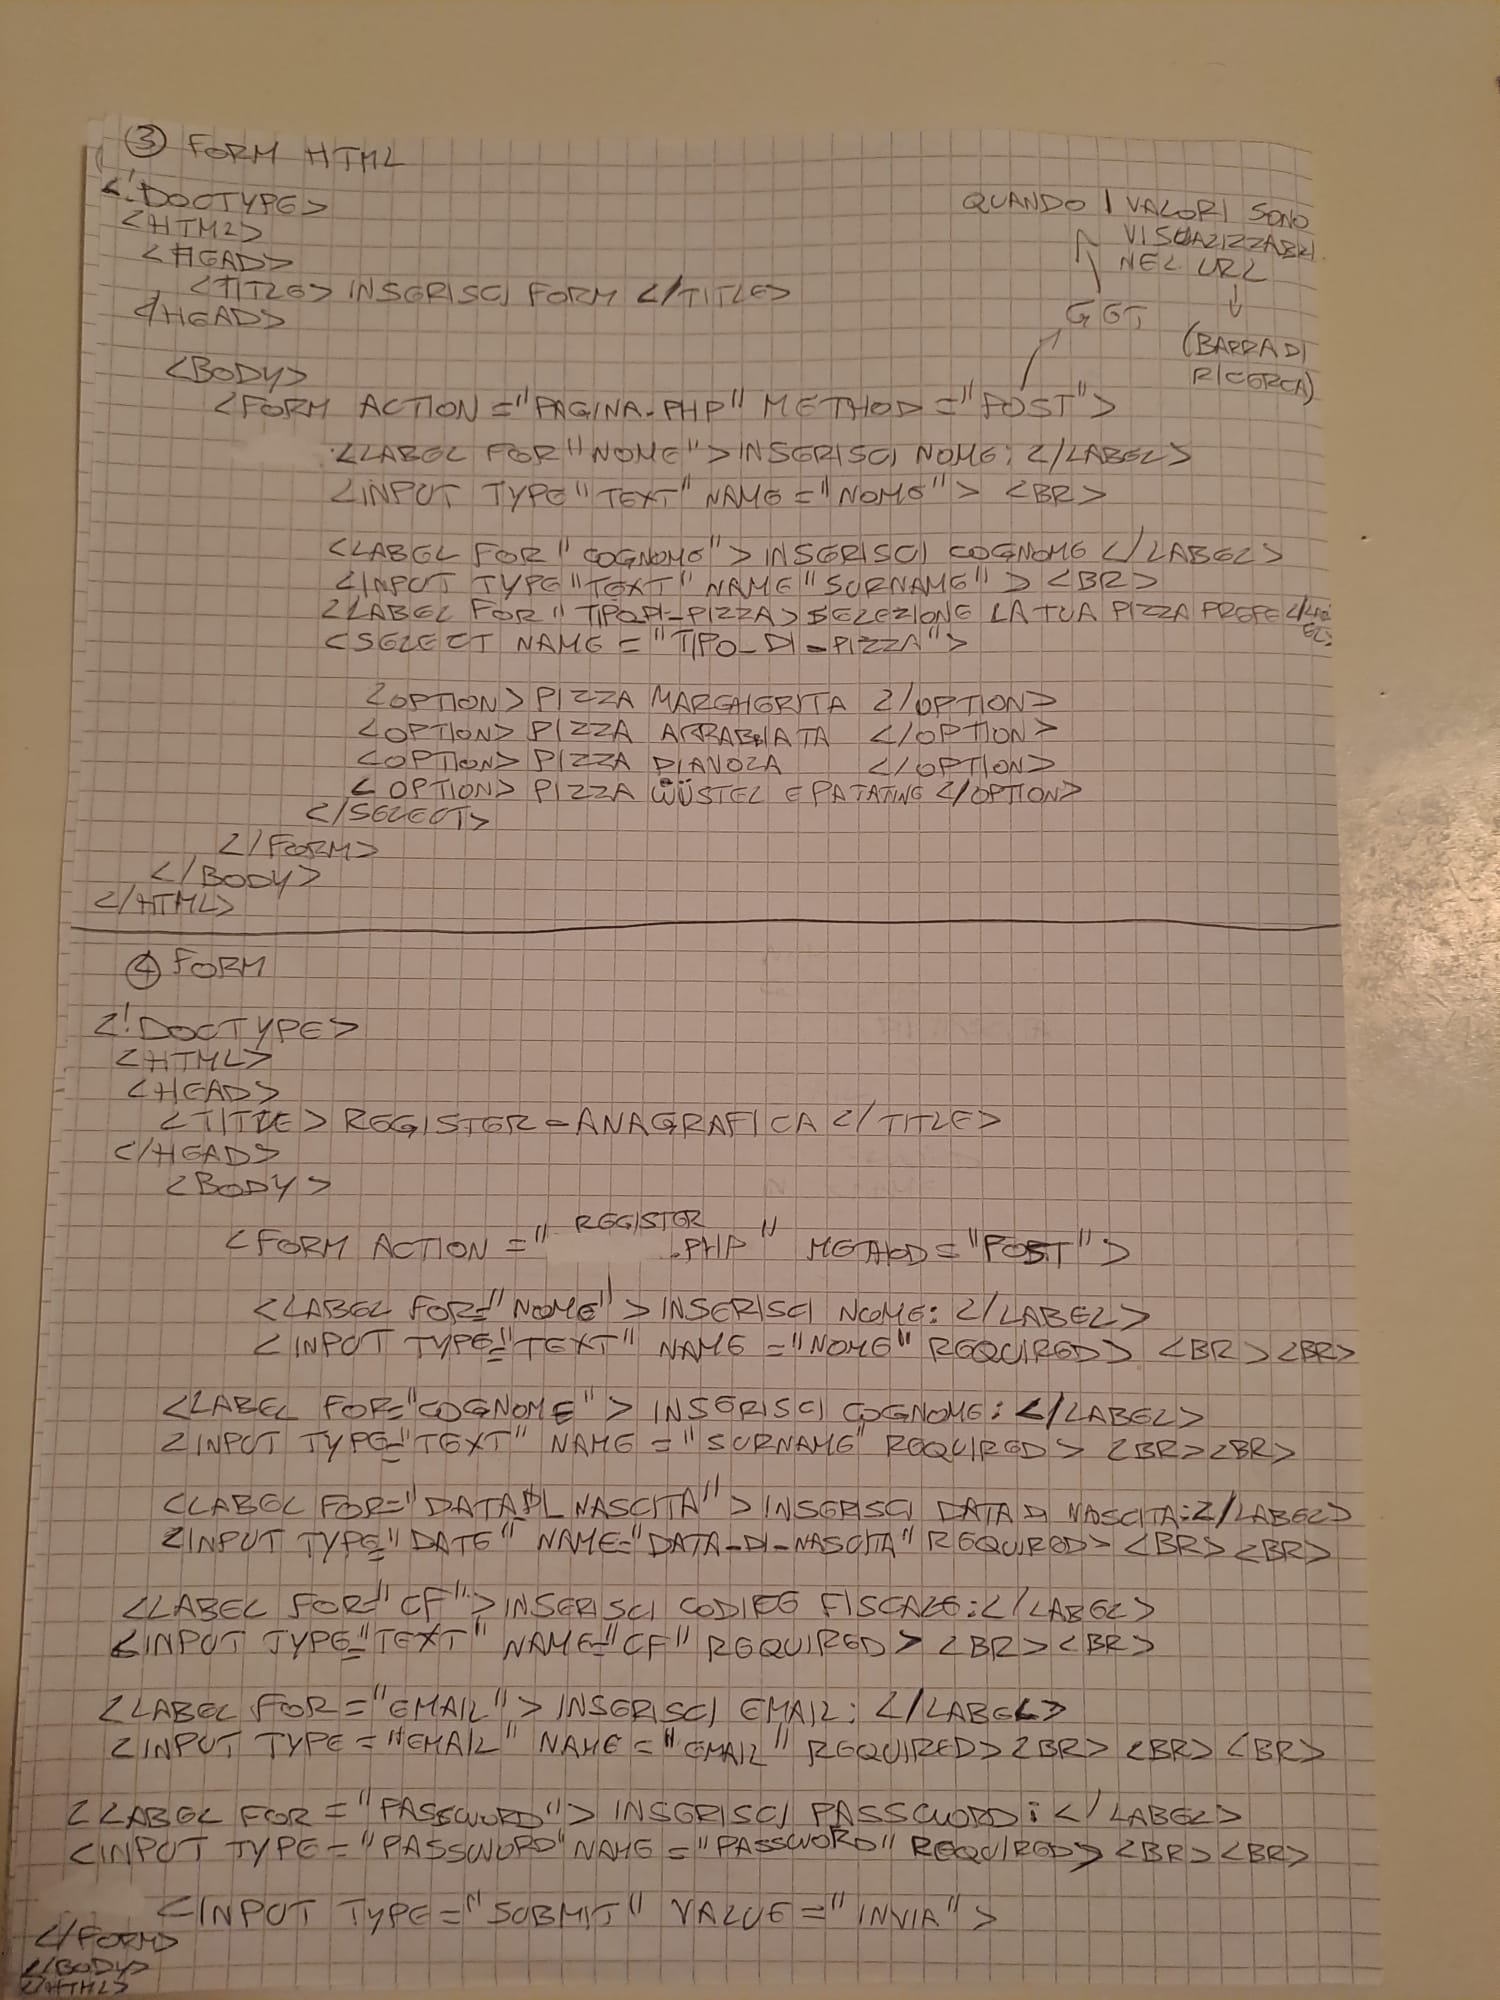 ③ FORM HTML
<!DOCTYPE>
<HTML>
<HEAD>
<TITLE> INSERISCI FORM </TITLE>
</HEAD>
QUANDO I VALORI SONO
VISUALIZZABILI
NEL URL
↓
(BARRA DI
RICERCA)
GET
<BODY>
<FORM ACTION="PAGINA.PHP" METHOD="POST">
<LABEL FOR"NOME">INSERISCI NOME: </LABEL>
<INPUT TYPE"TEXT" NAME="NOME"> <BR>
<LABEL FOR"COGNOME">INSERISCI COGNOME </LABEL>
<INPUT TYPE"TEXT" NAME"SURNAME"> <BR>
<LABEL FOR"TIPO.DI-PIZZA>SELEZIONE LA TUA PIZZA PREFE</LABEL>
<SELECT NAME="TIPO_DI_PIZZA">
<OPTION>PIZZA MARGHERITA </OPTION>
<OPTION>PIZZA ARRABBIATA </OPTION>
<OPTION>PIZZA DIAVOLA </OPTION>
<OPTION>PIZZA WÜSTEL E PATATINE </OPTION>
</SELECT>
</FORM>
</BODY>
</HTML>
④ FORM
<!DOCTYPE>
<HTML>
<HEAD>
<TITLE>REGISTER-ANAGRAFICA </TITLE>
</HEAD>
<BODY>
<FORM ACTION="REGISTER.PHP" METHOD="POST">
<LABEL FOR="NOME">INSERISCI NOME: </LABEL>
<INPUT TYPE="TEXT" NAME="NOME" REQUIRED> <BR><BR>
<LABEL FOR="COGNOME">INSERISCI COGNOME: </LABEL>
<INPUT TYPE="TEXT" NAME="SURNAME" REQUIRED> <BR><BR>
<LABEL FOR="DATA DI_NASCITA">INSERISCI DATA DI NASCITA:</LABEL>
<INPUT TYPE="DATE" NAME="DATA_DI_NASCITA" REQUIRED> <BR><BR>
<LABEL FOR="CF">INSERISCI CODICE FISCALE:</LABEL>
<INPUT TYPE="TEXT" NAME="CF" REQUIRED> <BR><BR>
<LABEL FOR="EMAIL">INSERISCI EMAIL: </LABEL>
<INPUT TYPE="EMAIL" NAME="EMAIL" REQUIRED><BR><BR><BR>
<LABEL FOR="PASSWORD">INSERISCI PASSWORD: </LABEL>
<INPUT TYPE="PASSWORD" NAME="PASSWORD" REQUIRED><BR><BR>
<INPUT TYPE="SUBMIT" VALUE="INVIA">
</FORM>
</BODY>
</HTML>